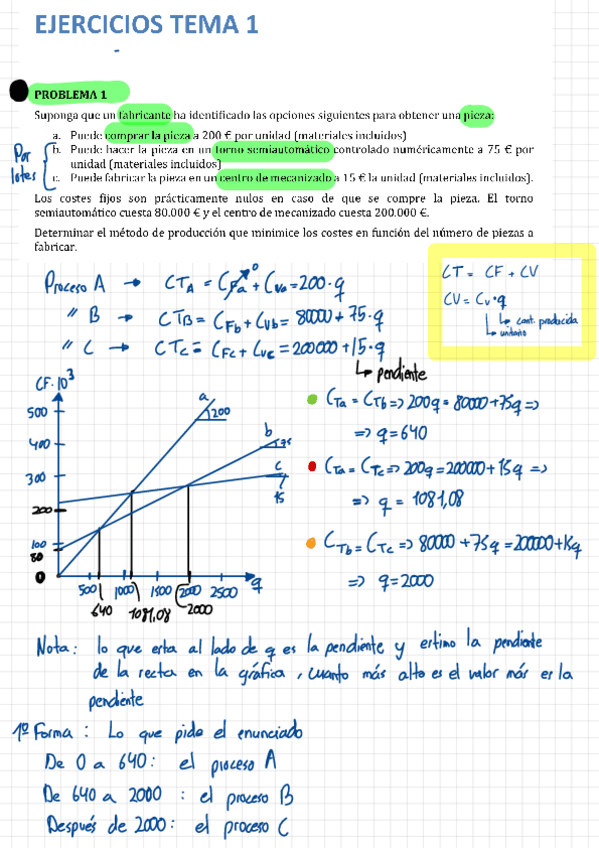 EJERCICIOS TEMA 1
PROBLEMA 1
Suponga que un fabricante ha identificado las opciones siguientes para obtener una pieza:
a. Puede comprar la pieza a 200 € por unidad (materiales incluidos)
b. Puede hacer la pieza en un torno semiautomático controlado numéricamente a 75 € por
unidad (materiales incluidos)
c. Puede fabricar la pieza en un centro de mecanizado a 15 € la unidad (materiales incluidos).
Por
lotes
Los costes fijos son prácticamente nulos en caso de que se compre la pieza. El torno
semiautomático cuesta 80.000 € y el centro de mecanizado cuesta 200.000 €.
Determinar el método de producción que minimice los costes en función del número de piezas a
fabricar.
CT = CF + CV
CV = Cv·q
↳ cant. producida
↳ unitario
Proceso A → CTA = CFa + CVa = 200·q
0
" B → CTB = CFb + CVb = 80000 + 75·q
" C → CTC = CFC + CVC = 200000 + 15·q
↳ pendiente
CF·10³
500
400
300
200
100
80
0
a
200
b
75
c
15
500 1000 1500 2000 2500 q
640 1081,08 2000
CTa = CTb => 200q = 80000 + 75q =>
=> q = 640
CTa = CTc => 200q = 200000 + 15q =>
=> q = 1081,08
CTb = CTc => 80000 + 75q = 200000 + 15q
=> q = 2000
Nota: lo que esta al lado de q es la pendiente y estimo la pendiente
de la recta en la gráfica, cuanto más alto es el valor más es la
pendiente
1º Forma: Lo que pide el enunciado
De 0 a 640: el proceso A
De 640 a 2000 : el proceso B
Después de 2000: el proceso C